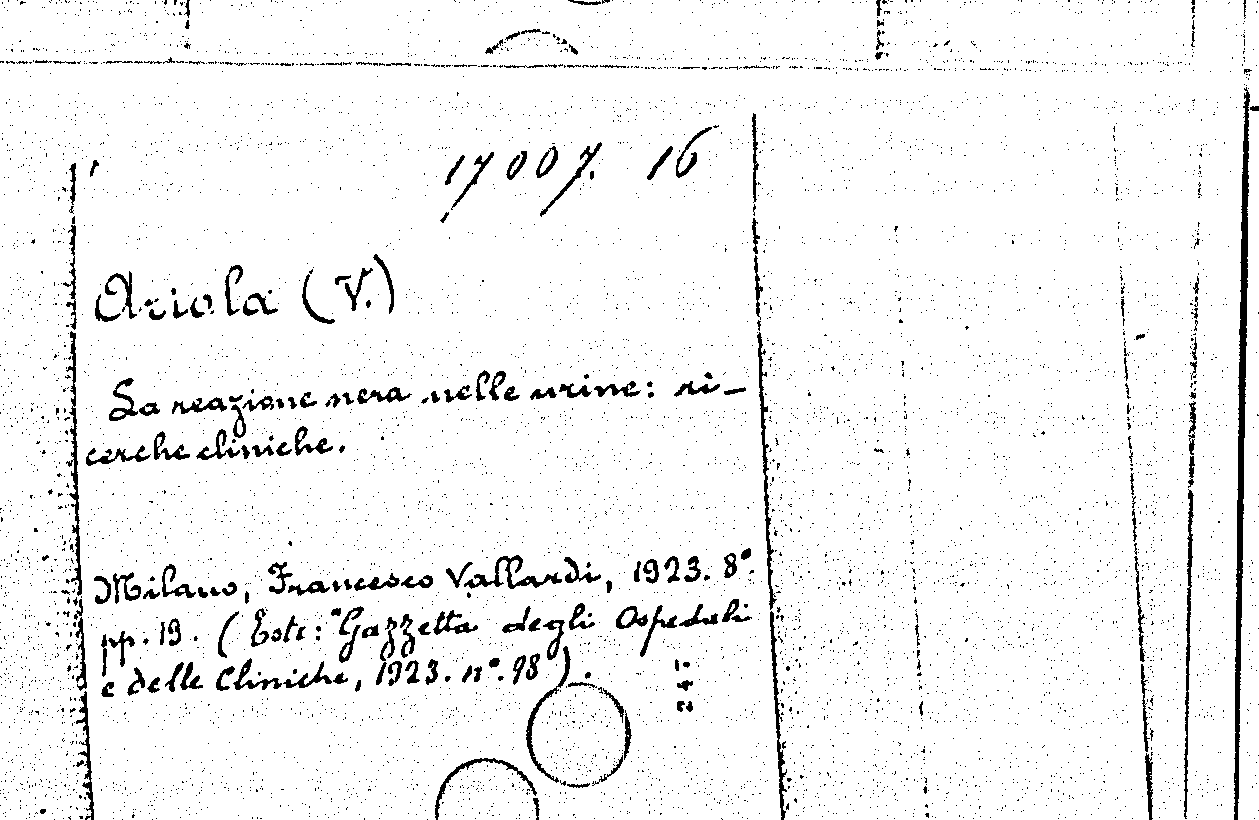 17007. 16
Ariola (V.)
La reazione nera nelle urine: ri-
cerche cliniche.
Milano, Francesco Vallardi, 1923. 8º.
pp. 19. (Estr: "Gazzetta degli Ospedali
e delle Cliniche, 1923. nº. 98").